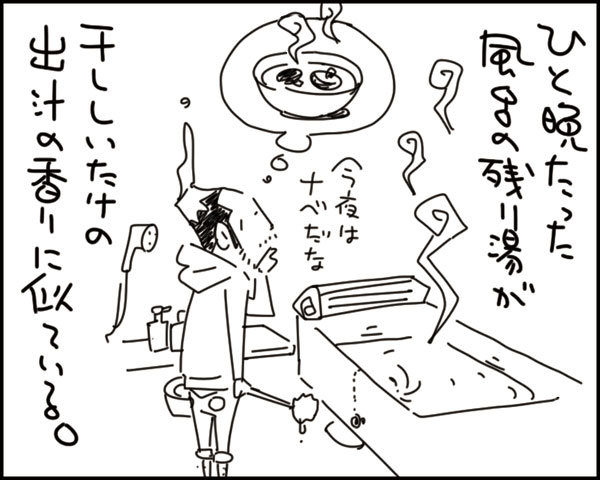 ひと晩たった
風呂の残り湯が
今夜は
ナベだな
干ししいたけの
出汁の香りに似ている。